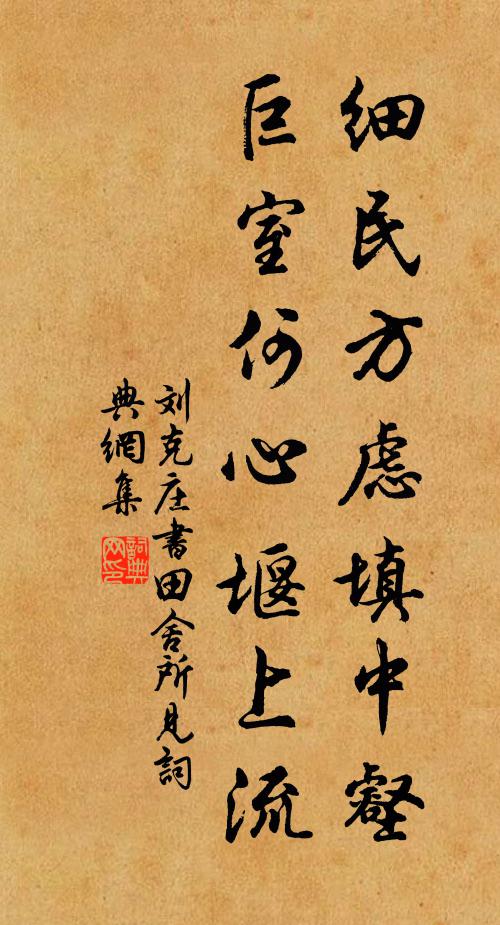 细民方虑填中壑
巨室何心堰上流
刘克庄书田舍所见詞
典網集
詞典
网印